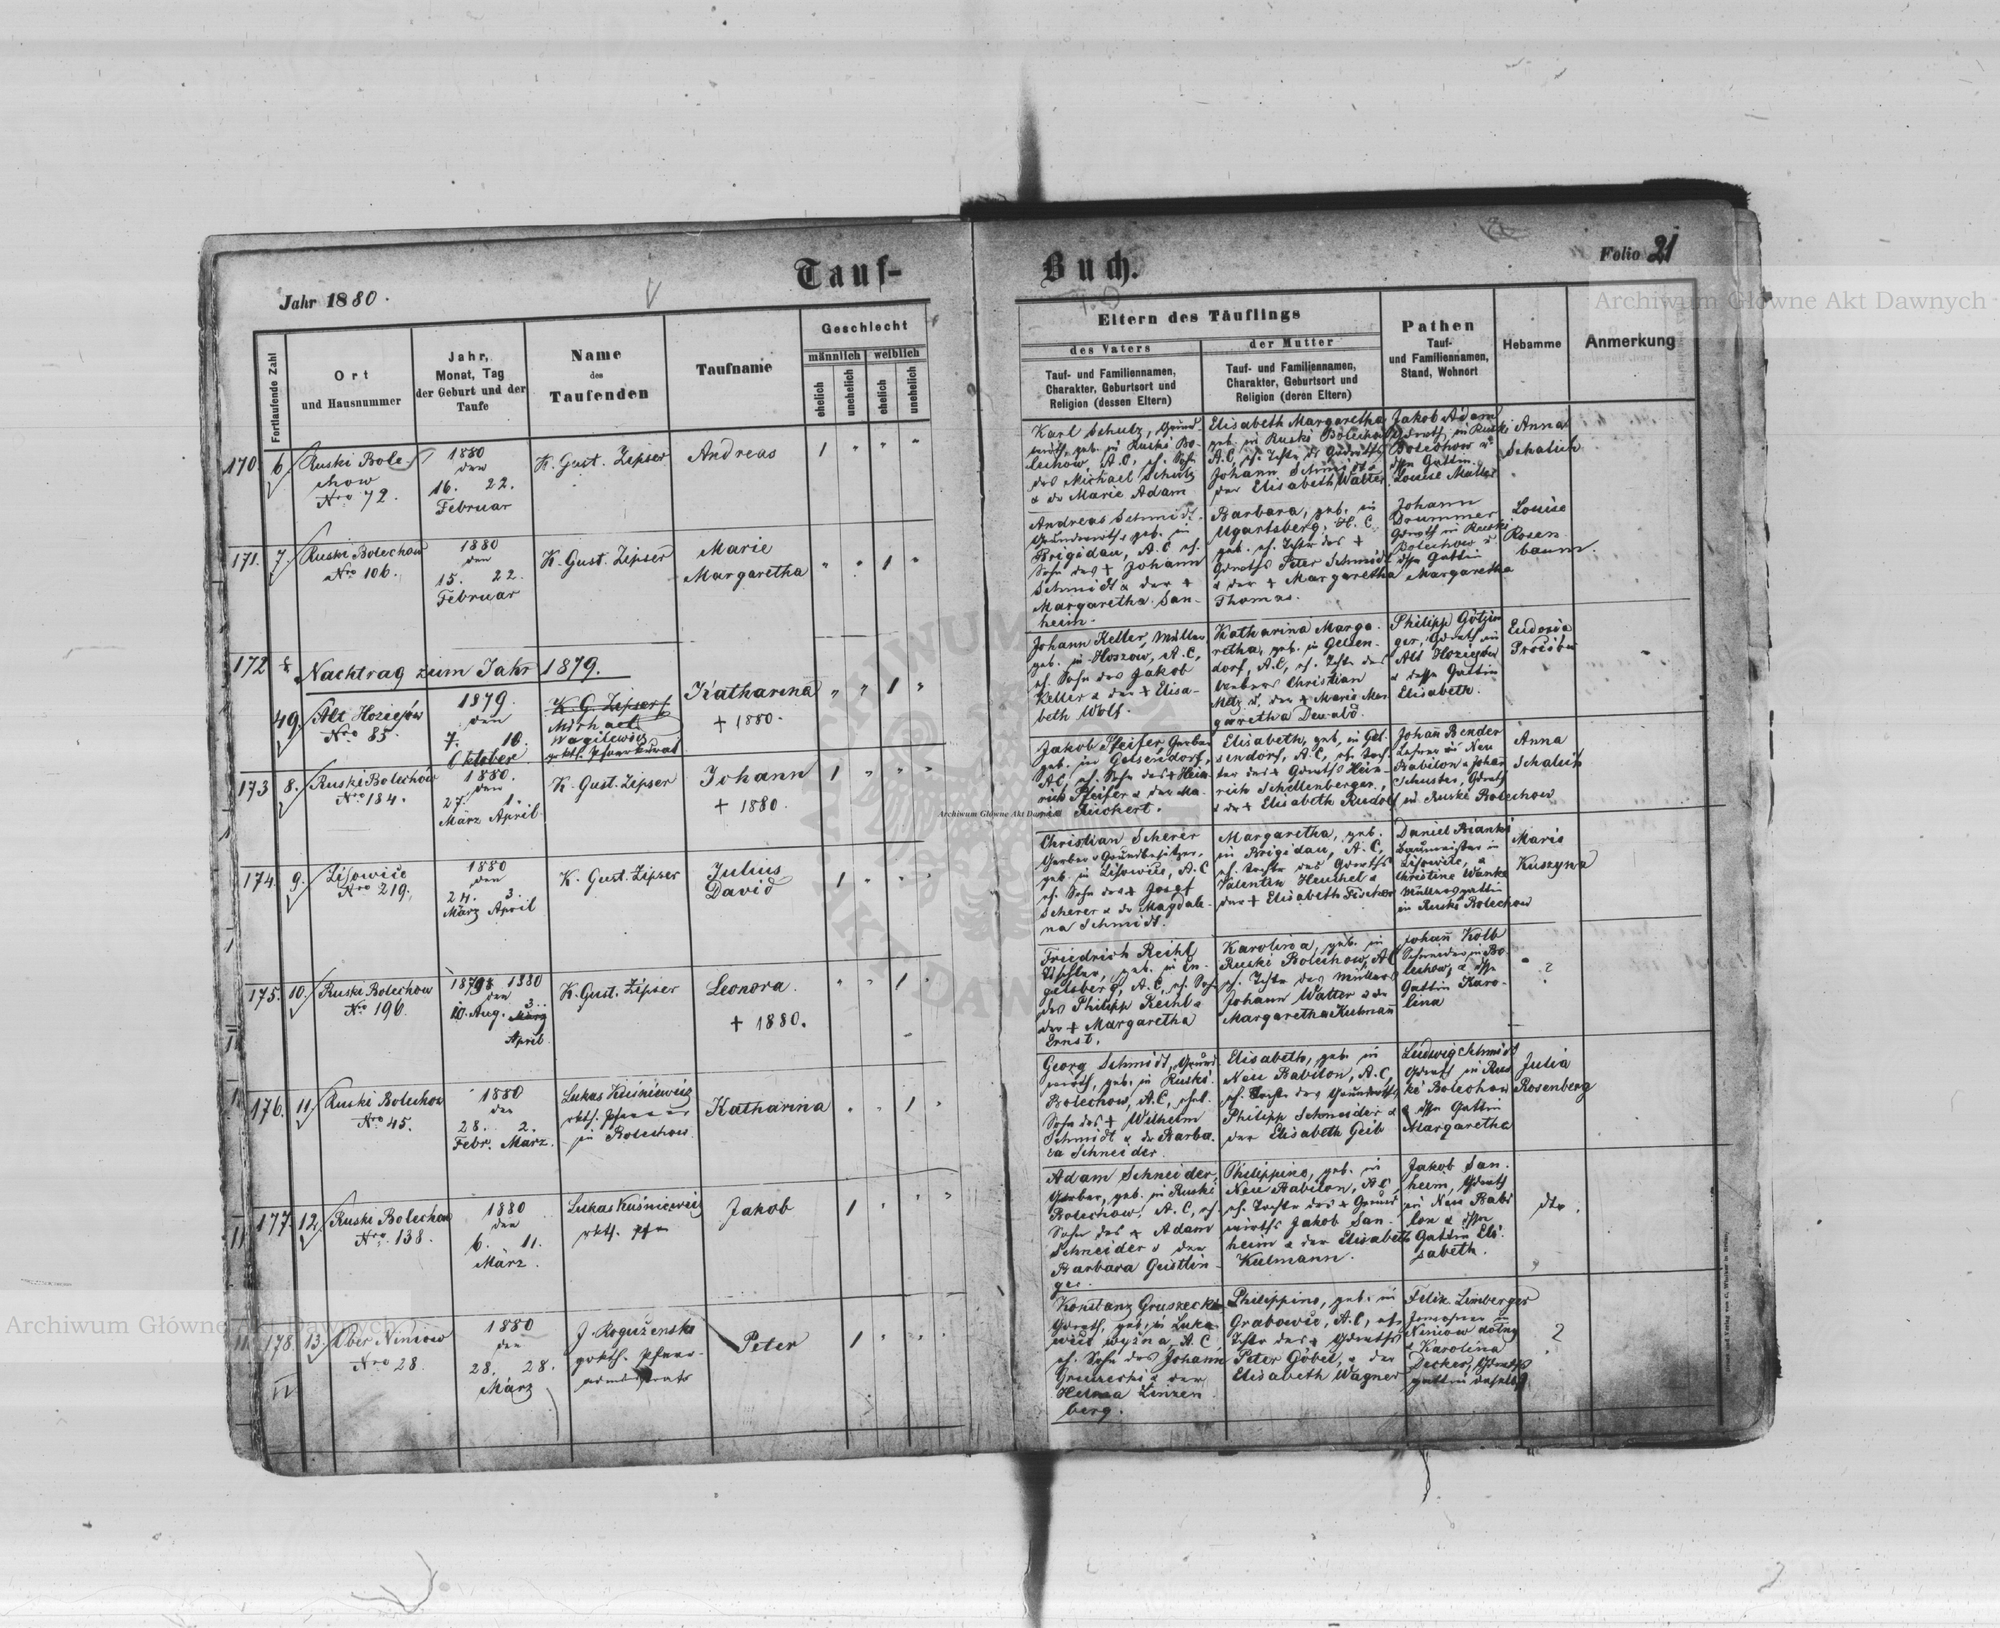 Tauf-
Buch.
Folio 21
Archiwum Główne Akt Dawnych
Jahr 1880.
Fortlaufende Zahl
Ort
und Hausnummer
Jahr,
Monat, Tag
der Geburt und der
Taufe
Name
des
Taufenden
Taufname
Geschlecht
männlich
weiblich
ehelich
unehelich
ehelich
unehelich
Eltern des Täuflings
des Vaters
Tauf- und Familiennamen,
Charakter, Geburtsort und
Religion (dessen Eltern)
der Mutter
Tauf- und Familiennamen,
Charakter, Geburtsort und
Religion (deren Eltern)
Pathen
Tauf-
und Familiennamen,
Stand, Wohnort
Hebamme
Anmerkung
170 6.
Ruski Bole
chow
Nro 72.
1880
den
16. 22.
Februar
K. Gust. Zipser
Andreas
1 " " "
Karl Schulz, Grund
wirth, geb. in Ruski Bo-
lechow, A.C., eh. Sohn
des Michael Schulz
u der Marie Adam
Elisabeth Margaretha
geb. in Ruski Bolechow
Johann Schmidt u
der Elisabeth Walter
Jakob Adam
Gdwrth. in Ruski
Bolechow u
dssn Gattin
Louise Walter
Anna
Schalich
171. 7.
Ruski Bolechow
Nro 106.
1880
den
15. 22.
Februar
K. Gust. Zipser
Marie
Margaretha
" " 1 "
Andreas Schmidt
Grundwirth, geb. in
Brigidau, A.C. eh.
Sohn des + Johann
Schmidt u der +
Margaretha San-
heim.
Barbara, geb. in
Ugartsberg, H. C.
geb. eh. Tchtr des +
Gdwrths Peter Schmidt
u der + Margaretha
Thomas.
Johann
Drummer
Gdwrth in Ruski
Bolechow u
dssn Gattin
Margaretha
Louise
Rosen
baum.
172
Nachtrag zum Jahr 1879.
49.
Alt Hoziejów
Nro 85.
1879.
den
7. 10.
Oktober
K. G. Zipser
Michael
Wagilewicz
Katharina
+ 1880.
" " 1 "
Johann Keller, Müller,
geb. in Hoszów, A.C,
eh. Sohn des Jakob
Keller u der + Elisa-
beth Wolf.
Katharina Marga-
retha, geb. in Gelsen-
dorf, A.C, eh. Tchtr des
Webers Christian
Metz u. der + Marie Mar
garetha
Philipp Götzin
ger, Gdwrth in
Alt Hoziejów
u dessn Gattin
Elisabeth.
Eudosia
173 8.
Ruski Bolechów
Nro 184.
1880.
den
27. 1.
März April
K. Gust. Zipser
Johann
+ 1880.
1 " " "
Jakob Pfeifer, Gerber
geb. in Gelsendorf,
A.C, eh. Sohn des + Hein
rich Pfeifer u der Ma-
ria Rückert.
Elisabeth, geb. in Gel-
sendorf, A.C, eh. Toch-
ter des + Gdwrths Hein-
rich Schellenberger,
u der + Elisabeth Rudolf
Johan Bender
Lehrer in Neu
Babilon u Johan
Schuster, Gdwrth
in Ruski Bolechow
Anna
Schalich
Archiwum Główne Akt Dawnych
174. 9.
Lisowice
Nro 219.
1880
den
24. 3.
März April
K. Gust. Zipser
Julius
David
1 " " "
Christian Scherer
Gerber u Grundbesitzer,
geb. in Lisowice, A.C
eh. Sohn des + Josef
Scherer u der Magdale-
na Schmidt.
Margaretha, geb.
in Brigidau, A.C,
eh. Tochter des Gdwrths
Valentin Heuchel u
der + Elisabeth Fischer
Daniel Bianki
Baumeister in
Lisowice, u
Christine Wanke
Müllersgattin
in Ruski Bolechow
Marie
Kuszyna
175. 10.
Ruski Bolechow
Nro 196.
1879 1880
den
10. Aug. 3. März
April
K. Gust. Zipser
Leonora.
+ 1880.
" " 1 "
Friedrich Reichl
Tischler, geb. in En-
gelsberg, A.C, eh. Sohn
des Philipp Reichl u
der + Margaretha
Ernst.
Karolina, geb. in
Ruski Bolechow, A.C
eh. Tchtr des Müllers
Johann Walter u der
Margaretha Kulman
Johan Kolb
Schneider in Bo-
lechow, u dssn
Gattin Karo-
lina
?
176. 11.
Ruski Bolechow
Nro 45.
1880
den
28. 2.
Febr. März.
Lukas Kuśniewicz
rkth. Pfarrer
in Bolechow
Katharina
" " 1 "
Georg Schmidt, Grund
wirth, geb. in Ruski
Bolechow, A.C, ehel.
Sohn des + Wilhelm
Schmidt u der Barba-
ra Schneider.
Elisabeth, geb. in
Neu Babilon, A.C,
eh. Tochtr des Grundwrths
Philipp Schneider u
der Elisabeth Geib
Ludwig Schmidt
Gdwrth in Rus
ki Bolechow
u dssn Gattin
Margaretha
Julia
Rosenberg
177. 12.
Ruski Bolechow
Nro 138.
1880
den
6. 11.
März.
Lukas Kuśniewicz
rkth. Pfrr
Jakob
1 " " "
Adam Schneider,
Gerber, geb. in Ruski
Bolechow, A.C, eh.
Sohn des + Adam
Schneider u der
Barbara Geistlin-
ger.
Philippina, geb. in
Neu Babilon, A.C,
eh. Tochtr des + Grund
wirths Jakob San-
heim u der Elisabeth
Kulmann.
Jakob San-
heim, Gdwrth
in Neu Babi
lon u dssn
Gattin Eli-
sabeth.
dto.
178. 13.
Ober Niniow
Nro 28.
1880
den
28. 28.
März
Peter
1 " " "
Konstanz Gruszecki
Gdwrth, geb. in Luka
wica wyżna, A.C,
eh. Sohn des Johann
Gruszecki u der
Helena Linzen
berg.
Philippina, geb. in
Grabowce, A.C, eh.
Tchtr des + Gdwrths
Peter Göbel, u der
Elisabeth Wagner
Felix Limberger
Niniow dolny
u Karolina
Decker, Gdwrths
gattin daselbst
?
Archiwum Główne Akt Dawnych